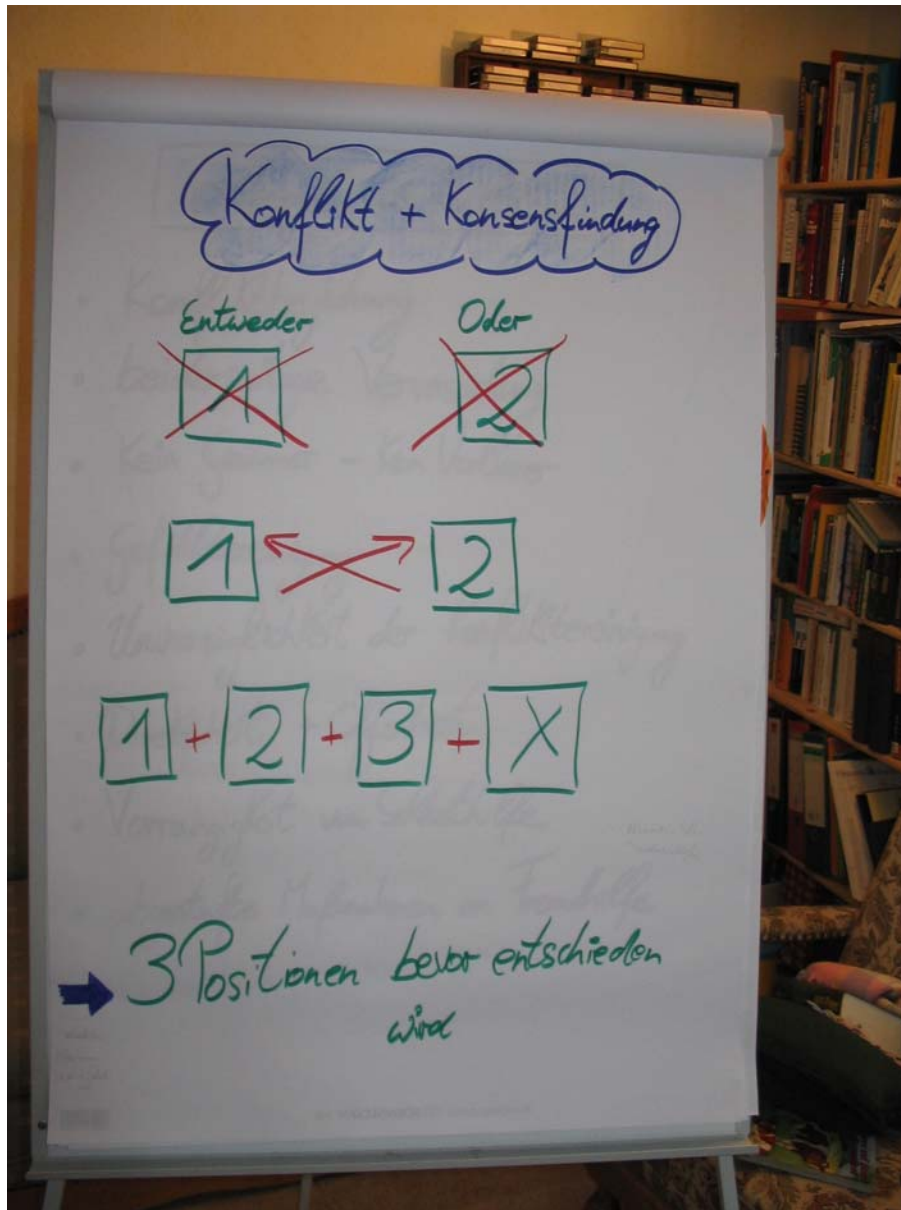 Konflikt + Konsensfindung
Entweder Oder
1 2
1 2
1 + 2 + 3 + X
3 Positionen bevor entschieden
wird